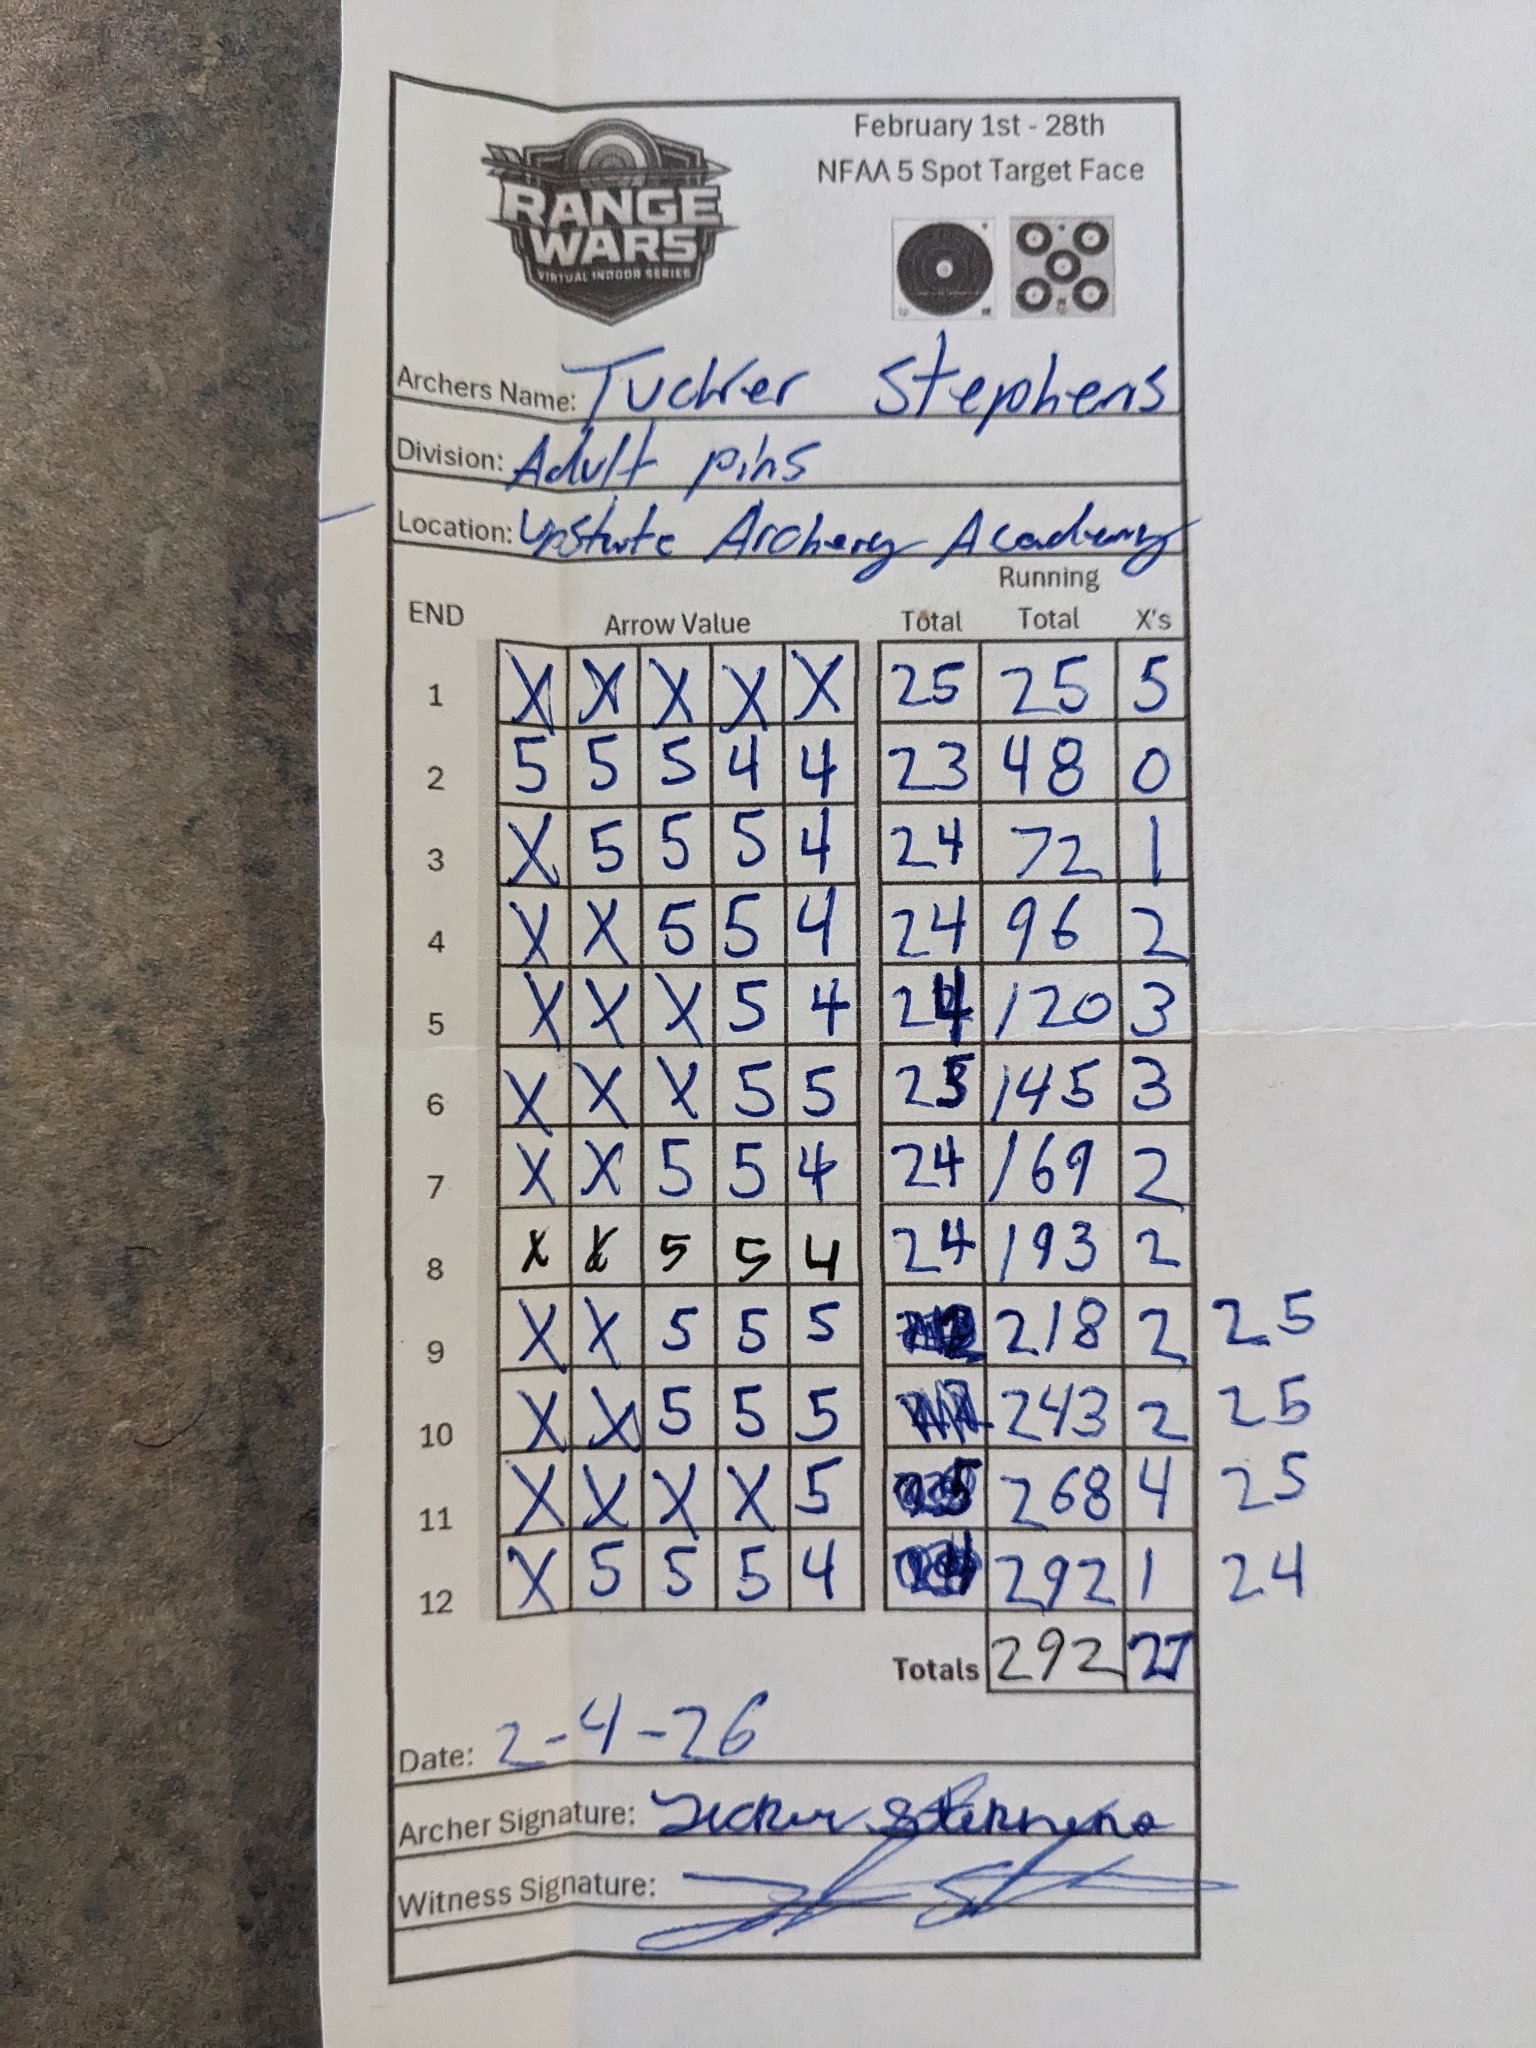 February 1st - 28th
NFAA 5 Spot Target Face
RANGE
WARS
VIRTUAL INDOOR SERIES
Archers Name: Tucker Stephens
Division: Adult pins
Location: Upstate Archery Academy
Running
END Arrow Value Total Total X's
1 X X X X X 25 25 5
2 5 5 5 4 4 23 48 0
3 X 5 5 5 4 24 72 1
4 X X 5 5 4 24 96 2
5 X X X 5 4 24 120 3
6 X X X 5 5 25 145 3
7 X X 5 5 4 24 169 2
8 X X 5 5 4 24 193 2
9 X X 5 5 5 218 2 25
10 X X 5 5 5 243 2 25
11 X X X X 5 268 4 25
12 X 5 5 5 4 292 1 24
Totals 292 27
Date: 2-4-26
Archer Signature: Tucker Stephens
Witness Signature: